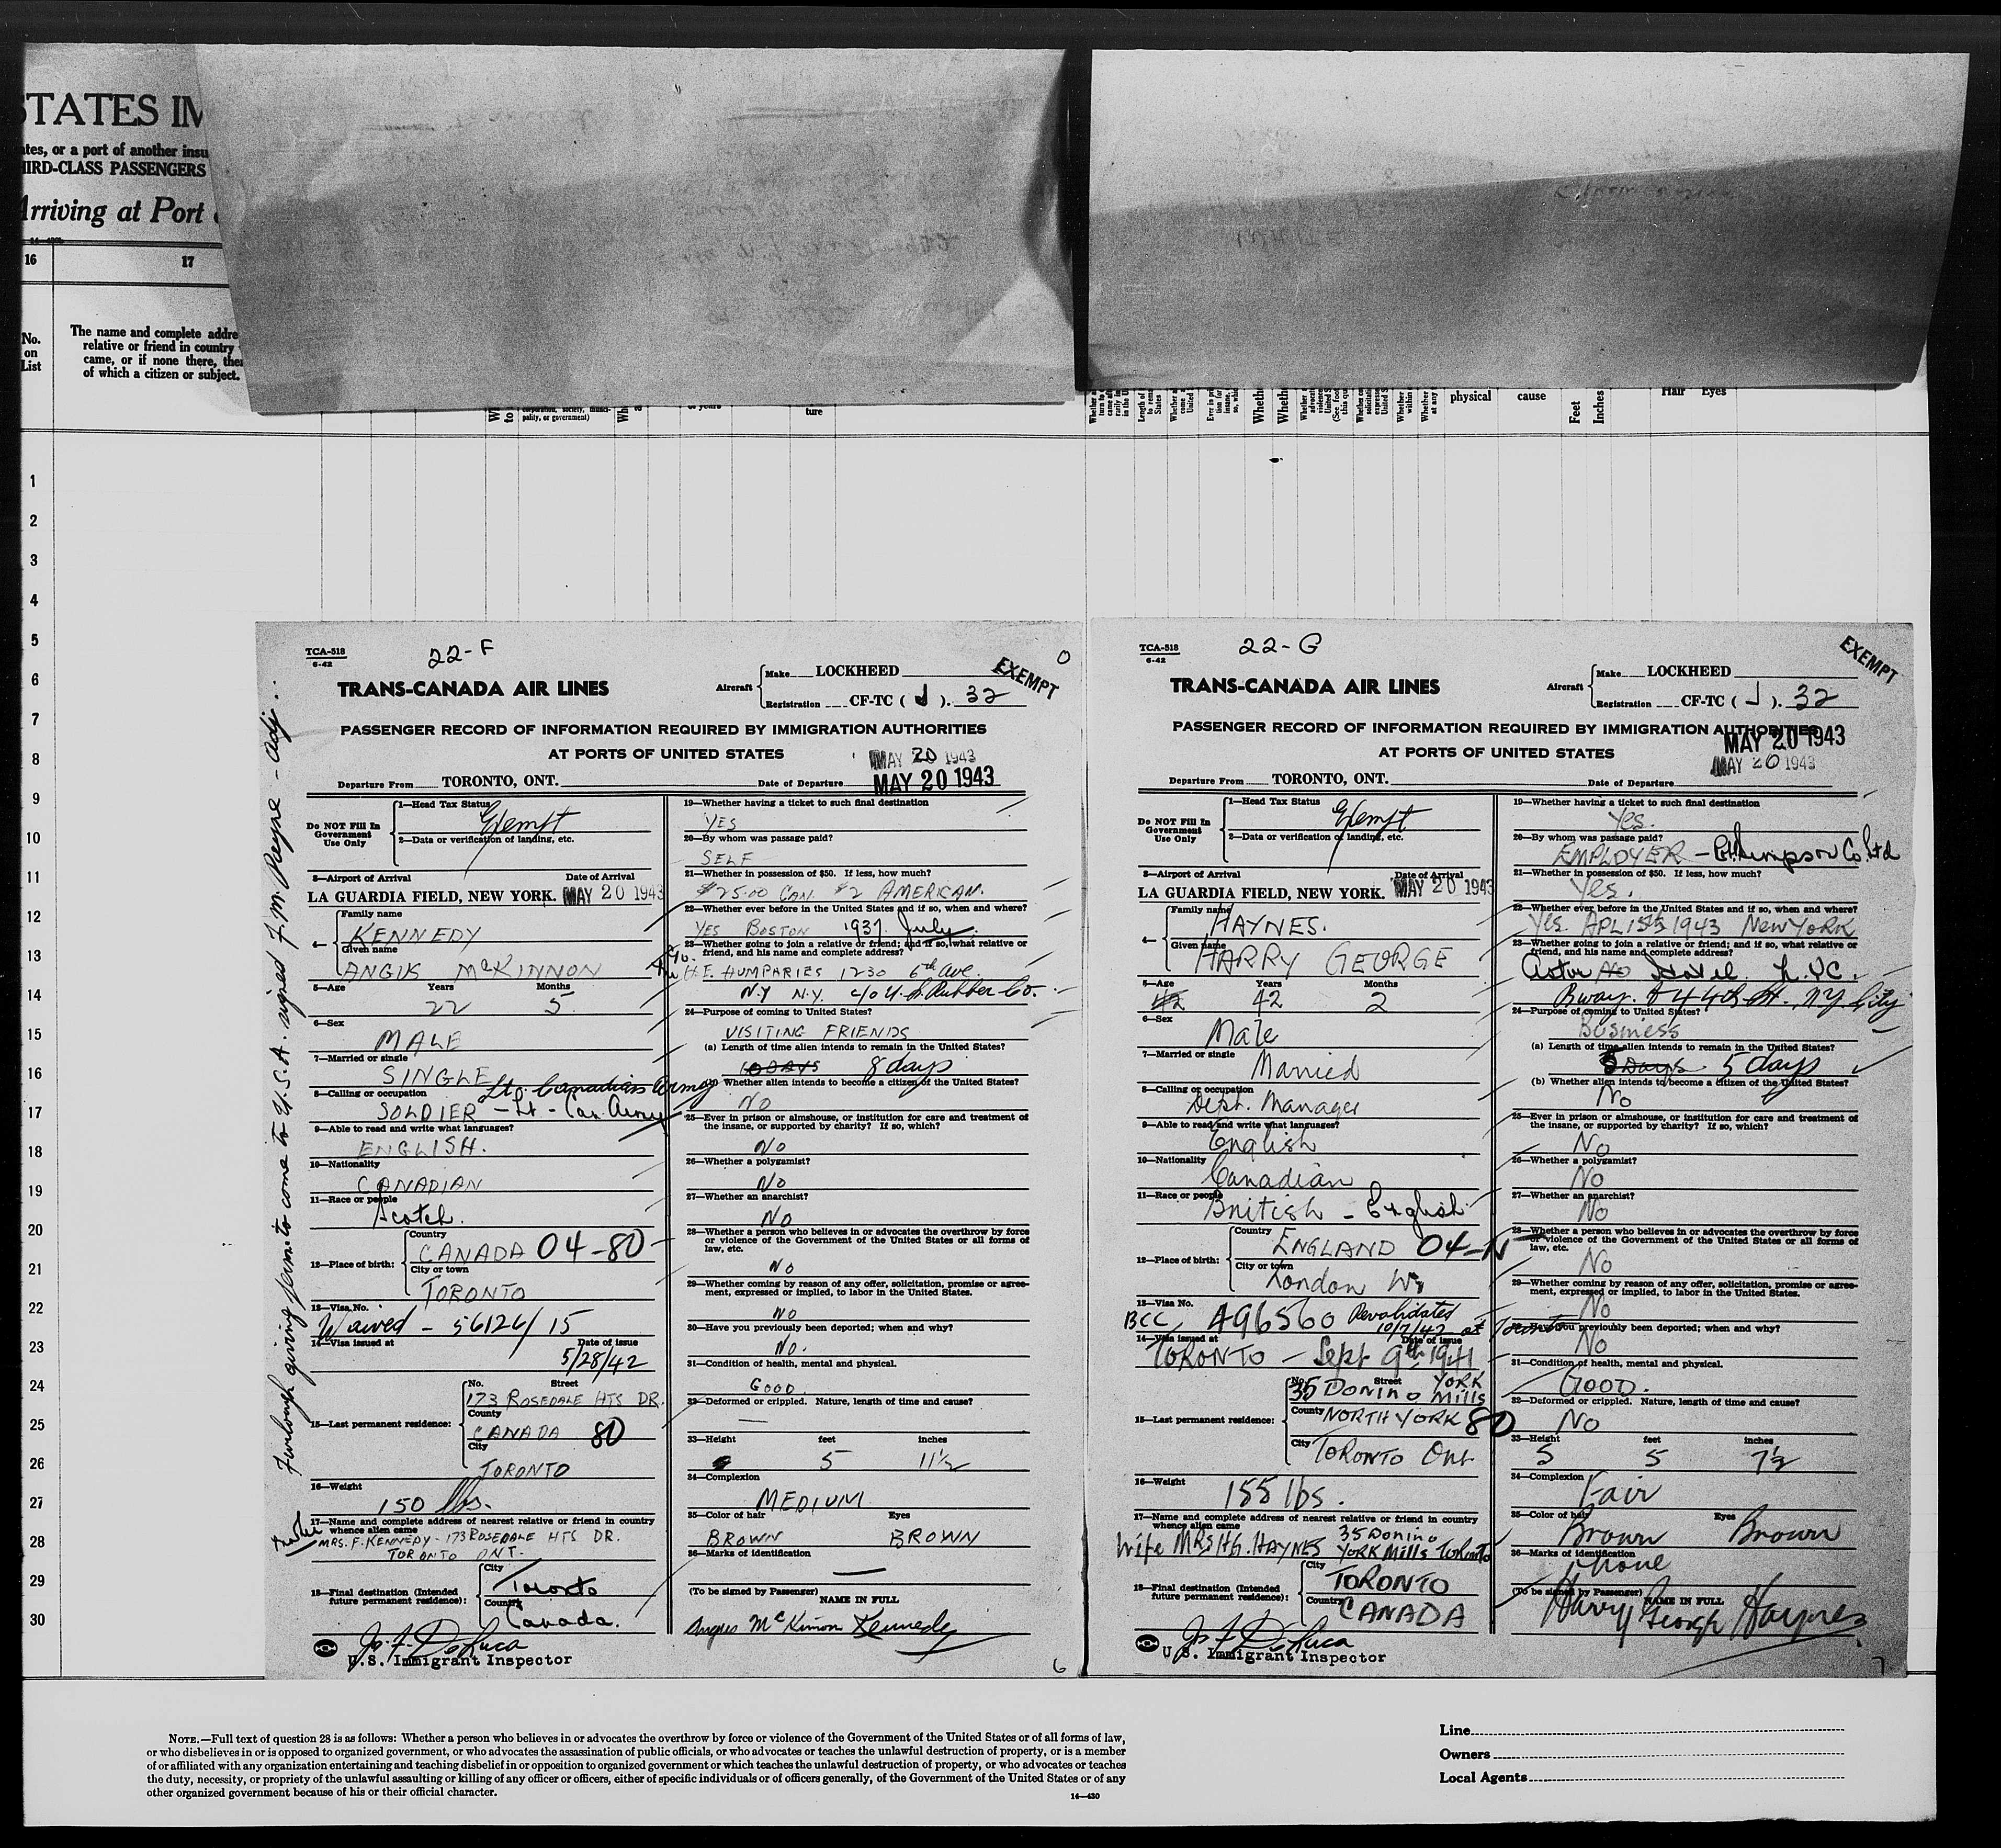 STATES IM
ates, or a port of another insu
HIRD-CLASS PASSENGERS
Arriving at Port
16
17
No.
on
List
The name and complete addre
relative or friend in country
came, or if none there, then
of which a citizen or subject.
corporation, society, munici-
pality, or government)
of years
ture
physical
cause
Feet
Inches
Hair Eyes
1
2
3
4
5
6
7
8
9
10
11
12
13
14
15
16
17
18
19
20
21
22
23
24
25
26
27
28
29
30
Furlough giving perm. to come to U.S.A. signed J.M. Payne - Adj.
TCA-518
6-42
22-F
O
EXEMPT
TRANS-CANADA AIR LINES
Aircraft
Make LOCKHEED
Registration CF-TC ( J ). 32
PASSENGER RECORD OF INFORMATION REQUIRED BY IMMIGRATION AUTHORITIES
AT PORTS OF UNITED STATES
MAY 20 1943
Departure From TORONTO, ONT. Date of Departure MAY 20 1943
Do NOT Fill In
Government
Use Only
1—Head Tax Status
Exempt
2—Data or verification of landing, etc.
3—Airport of Arrival Date of Arrival
LA GUARDIA FIELD, NEW YORK. MAY 20 1943
4—
Family name
KENNEDY
Given name
ANGUS McKINNON
5—Age Years Months
22 5
6—Sex
MALE
7—Married or single
SINGLE
Lt. Canadian Army
8—Calling or occupation
SOLDIER - Lt - Can. Army
9—Able to read and write what languages?
ENGLISH.
10—Nationality
CANADIAN
11—Race or people
Scotch.
12—Place of birth:
Country
CANADA 04-80
City or town
TORONTO
13—Visa No.
Waived - 56126/15
14—Visa issued at Date of issue
5/28/42
15—Last permanent residence:
No. Street
173 ROSEDALE HTS DR.
County
CANADA 80
City
TORONTO
16—Weight
150 lbs.
17—Name and complete address of nearest relative or friend in country
whence alien came
MRS. F. KENNEDY - 173 ROSEDALE HTS DR.
TORONTO ONT.
18—Final destination (Intended
future permanent residence):
City
Toronto
Country
Canada.
U.S. Immigrant Inspector
19—Whether having a ticket to such final destination
YES
20—By whom was passage paid?
SELF
21—Whether in possession of $50. If less, how much?
$25.00 CAN. $2 AMERICAN.
22—Whether ever before in the United States and if so, when and where?
YES BOSTON 1937. July.
23—Whether going to join a relative or friend; and if so, what relative or
friend, and his name and complete address?
H.E. HUMPARIES 1230 6th Ave.
N.Y N.Y. c/o U.S. Rubber Co.
24—Purpose of coming to United States?
VISITING FRIENDS
(a) Length of time alien intends to remain in the United States?
10 DAYS 8 days
Whether alien intends to become a citizen of the United States?
NO
25—Ever in prison or almshouse, or institution for care and treatment of
the insane, or supported by charity? If so, which?
NO
26—Whether a polygamist?
NO
27—Whether an anarchist?
NO
28—Whether a person who believes in or advocates the overthrow by force
or violence of the Government of the United States or all forms of
law, etc.
NO
29—Whether coming by reason of any offer, solicitation, promise or agree-
ment, expressed or implied, to labor in the United States.
NO
30—Have you previously been deported; when and why?
NO.
31—Condition of health, mental and physical.
GOOD
32—Deformed or crippled. Nature, length of time and cause?
33—Height feet inches
5 11½
34—Complexion
MEDIUM
35—Color of hair Eyes
BROWN BROWN
36—Marks of identification
(To be signed by Passenger) NAME IN FULL
Angus McKinnon Kennedy
6
TCA-518
6-42
22-G
EXEMPT
TRANS-CANADA AIR LINES
Aircraft
Make LOCKHEED
Registration CF-TC ( J ). 32
PASSENGER RECORD OF INFORMATION REQUIRED BY IMMIGRATION AUTHORITIES
MAY 20 1943
AT PORTS OF UNITED STATES
MAY 20 1943
Departure From TORONTO, ONT. Date of Departure
Do NOT Fill In
Government
Use Only
1—Head Tax Status
Exempt
2—Data or verification of landing, etc.
3—Airport of Arrival Date of Arrival
LA GUARDIA FIELD, NEW YORK. MAY 20 1943
4—
Family name
HAYNES.
Given name
HARRY GEORGE
5—Age Years Months
42 42 2
6—Sex
Male
7—Married or single
Married
8—Calling or occupation
Dept. Manager
9—Able to read and write what languages?
English
10—Nationality
Canadian
11—Race or people
British - English
12—Place of birth:
Country
ENGLAND 04-N
City or town
London W.
13—Visa No.
BCC A96560 Revalidated
10/7/42 at Toronto
14—Visa issued at Date of issue
TORONTO - Sept 9th 1941
15—Last permanent residence:
No. Street
35 DONINO YORK Mills
County NORTH YORK 80
City TORONTO Ont
16—Weight
155 lbs.
17—Name and complete address of nearest relative or friend in country
whence alien came
35 Donino
Wife MRS H.G. HAYNES YORK Mills Toronto
18—Final destination (Intended
future permanent residence):
City
TORONTO
Country
CANADA
U.S. Immigrant Inspector
19—Whether having a ticket to such final destination
Yes.
20—By whom was passage paid?
EMPLOYER - Simpson Co Ltd
21—Whether in possession of $50. If less, how much?
Yes.
22—Whether ever before in the United States and if so, when and where?
Yes. APL 15th 1943 New York
23—Whether going to join a relative or friend; and if so, what relative or
friend, and his name and complete address?
Astor No Hotel N.YC.
Bway. & 44th St. N.Y. City
24—Purpose of coming to United States?
Business
(a) Length of time alien intends to remain in the United States?
5 Days 5 days
(b) Whether alien intends to become a citizen of the United States?
No
25—Ever in prison or almshouse, or institution for care and treatment of
the insane, or supported by charity? If so, which?
No
26—Whether a polygamist?
No
27—Whether an anarchist?
No
28—Whether a person who believes in or advocates the overthrow by force
or violence of the Government of the United States or all forms of
law, etc.
No
29—Whether coming by reason of any offer, solicitation, promise or agree-
ment, expressed or implied, to labor in the United States.
No
30—Have you previously been deported; when and why?
No
31—Condition of health, mental and physical.
GOOD.
32—Deformed or crippled. Nature, length of time and cause?
No
33—Height feet inches
5 5 7½
34—Complexion
Fair
35—Color of hair Eyes
Brown Brown
36—Marks of identification
None
(To be signed by Passenger) NAME IN FULL
Harry George Haynes
7
NOTE.—Full text of question 28 is as follows: Whether a person who believes in or advocates the overthrow by force or violence of the Government of the United States or of all forms of law,
or who disbelieves in or is opposed to organized government, or who advocates the assassination of public officials, or who advocates or teaches the unlawful destruction of property, or is a member
of or affiliated with any organization entertaining and teaching disbelief in or opposition to organized government or which teaches the unlawful destruction of property, or who advocates or teaches
the duty, necessity, or propriety of the unlawful assaulting or killing of any officer or officers, either of specific individuals or of officers generally, of the Government of the United States or of any
other organized government because of his or their official character.
14—430
Line
Owners
Local Agents